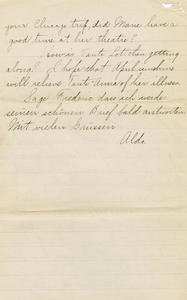 your Chicago trip, did Marie have a
good time at her theatre?
How is Tante Lottchen getting
along? I hope that April sunshine
will relieve Tante Anna of her illness
Sage Frederic dass ich werde
seinen schönen Brief bald antworten
Mit vielen Grüssen
Aldo